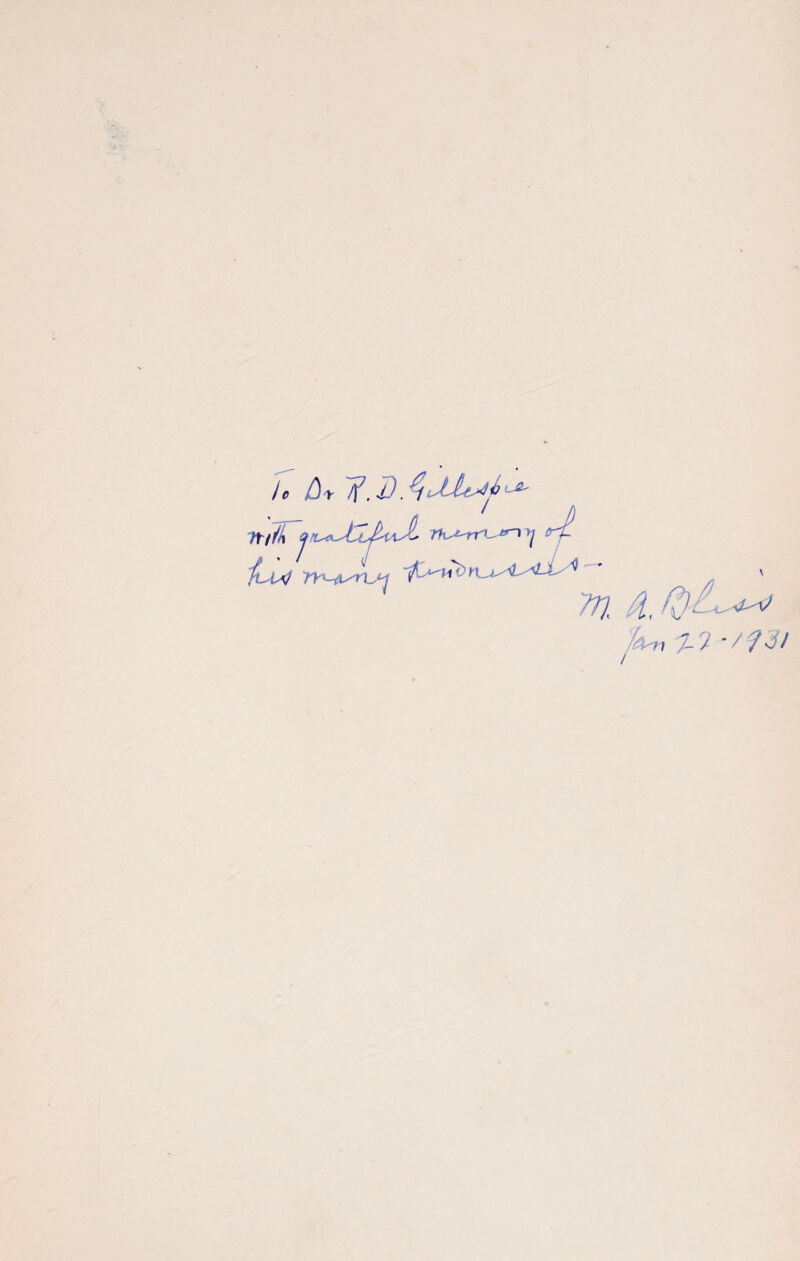 To Dr R. D. Gillespie
with grateful memory of
his many kindnesses—
M. A. Bliss
Jan 22-1931